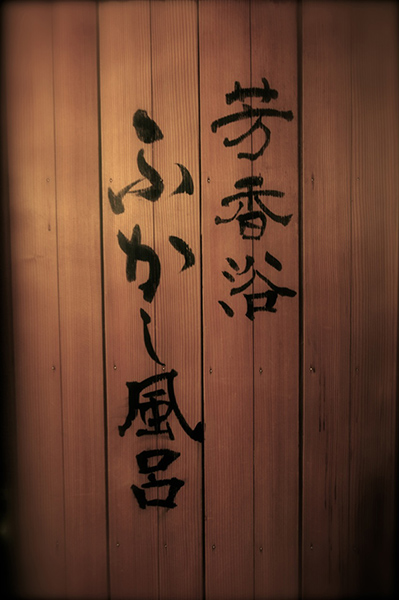 芳香浴
ふかし風呂